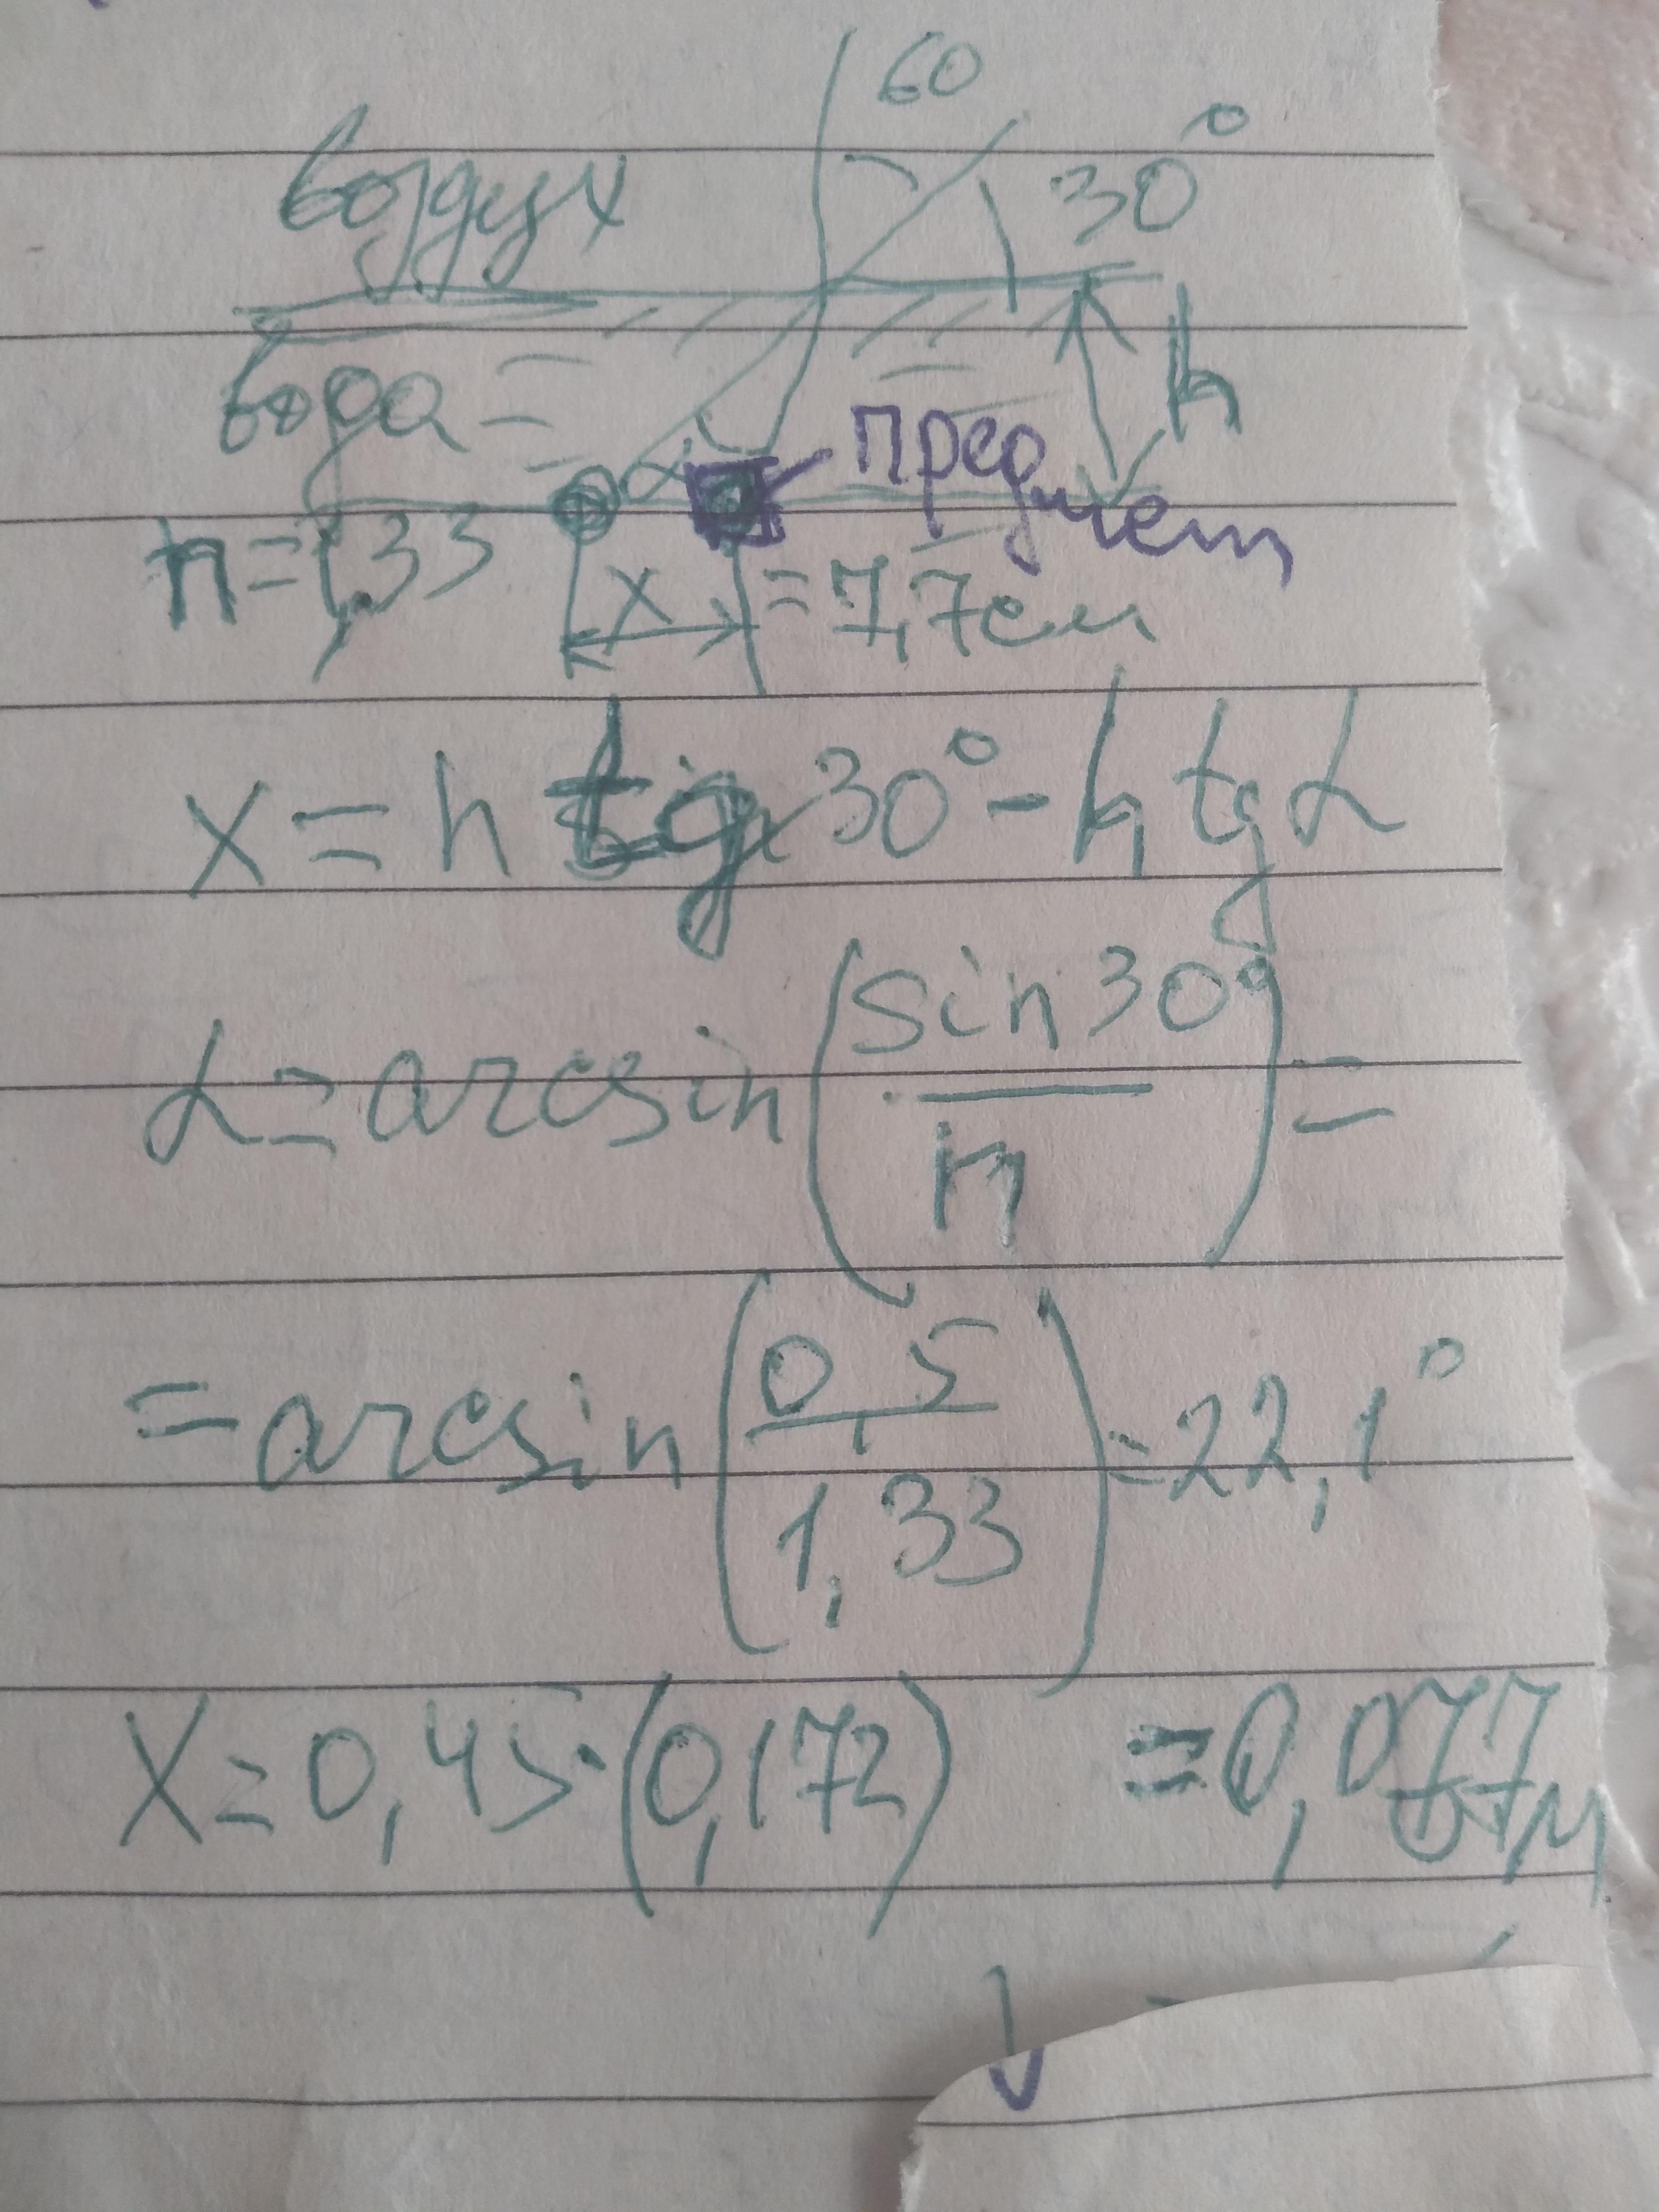 60
воздух 30°
вода h
α предмет
n=1,33 x =7,7см
x=h tg 30°-h tg α
α=arcsin(sin30°/n)=
=arcsin(0,5/1,33)=22,1°
X=0,45·(0,172) =0,077м